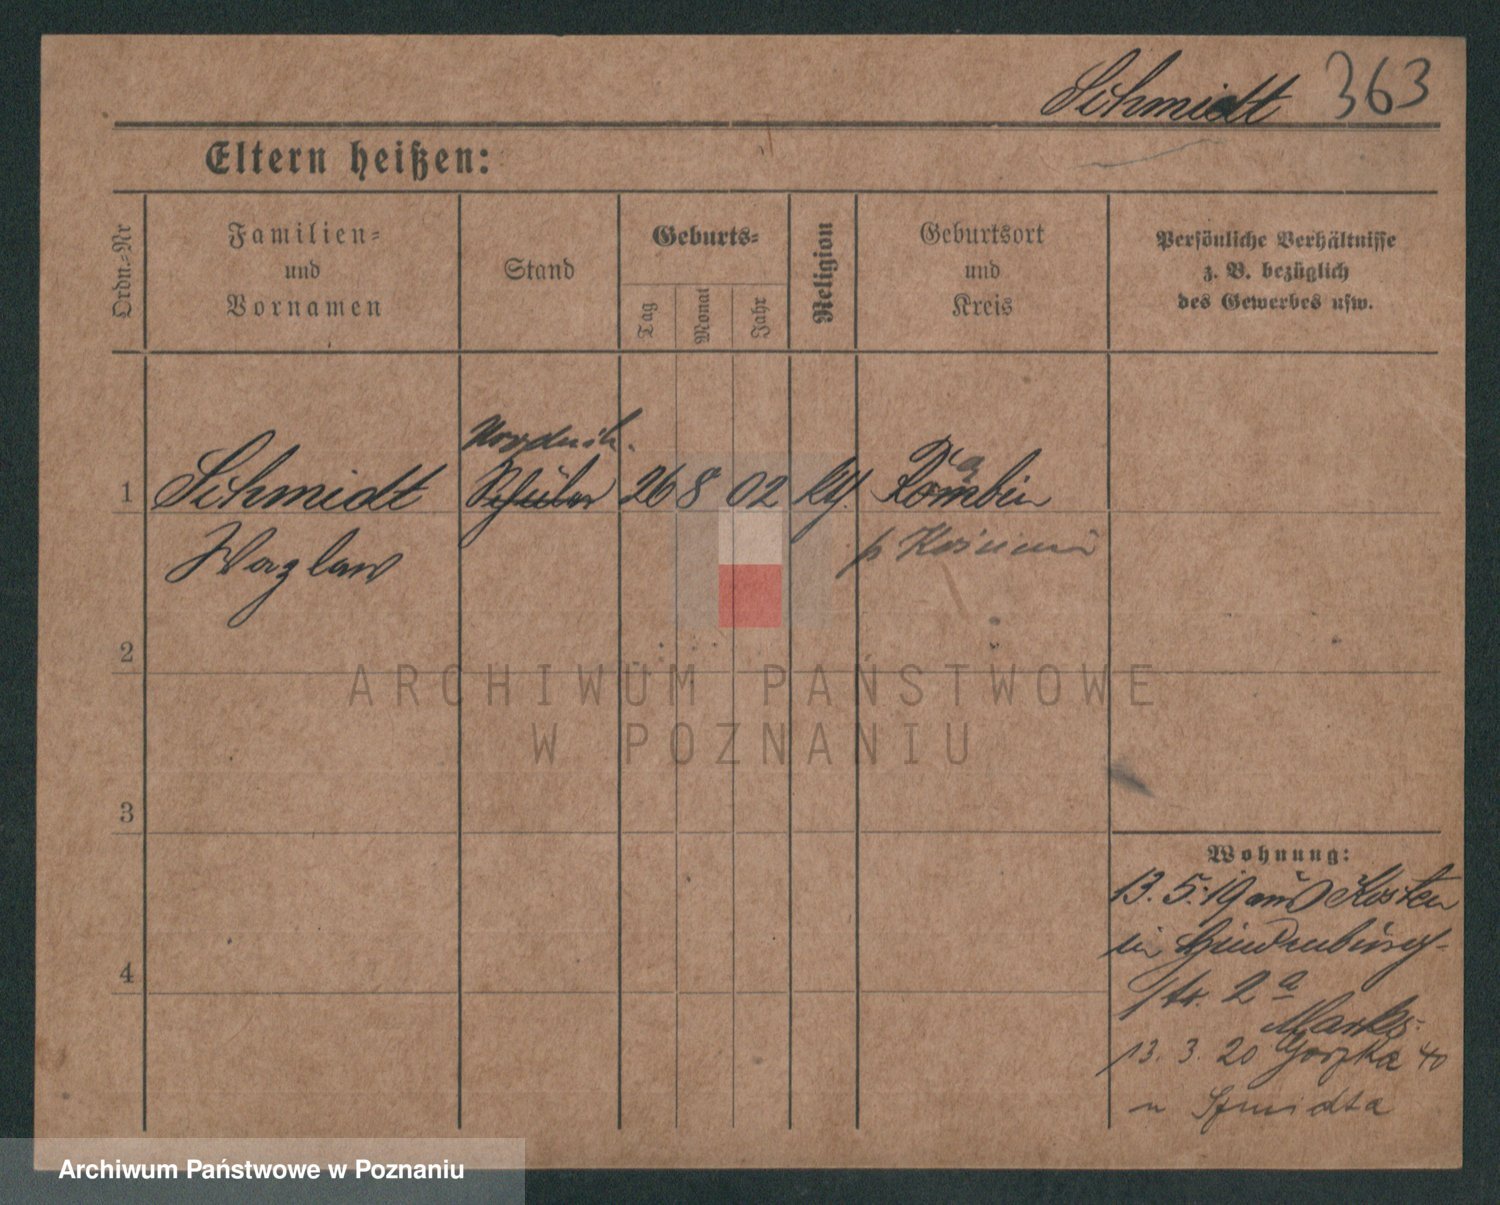 Schmidt 363
Eltern heißen:
Ordn.-Nr
Familien-
und
Vornamen
Stand
Geburts-
Tag
Monat
Jahr
Religion
Geburtsort
und
Kreis
Persönliche Verhältnisse
z. B. bezüglich
des Gewerbes usw.
1 Schmidt Schüler 26 8 02 Rombin
a
Wazlaw
2
3
4
Wohnung:
13. 5. 19 aus Kosten
in Hindenburg-
str. 2a
13. 3. 20 Gorzka 40
u Szmidta
ARCHIWUM PAŃSTWOWE
W POZNANIU
Archiwum Państwowe w Poznaniu